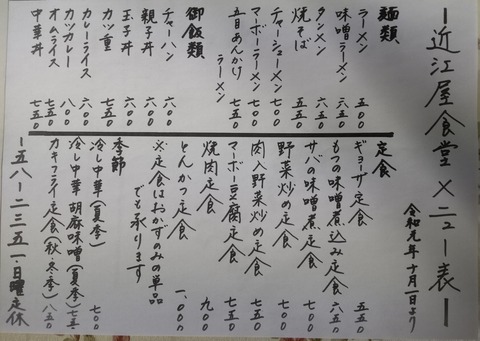 ー近江屋食堂メニュー表ー
令和元年十月一日より
麺類
ラーメン 五〇〇
味噌ラーメン 五五〇
タンメン 六五〇
焼そば 五五〇
チャーシューメン 七〇〇
マーボーラーメン 七五〇
五目あんかけラーメン 七五〇
御飯類
チャーハン 六〇〇
親子丼 六〇〇
玉子丼 六〇〇
カツ重 七五〇
カレーライス 六〇〇
カツカレー 八〇〇
オムライス 七五〇
中華丼 七五〇
定食
ギョーザ定食 五五〇
もつの味噌煮込み定食 六五〇
サバの味噌煮定食 七〇〇
野菜炒め定食 七〇〇
肉入野菜炒め定食 七五〇
マーボー豆腐定食 七五〇
焼肉定食 九〇〇
とんかつ定食 一、〇〇〇
※定食はおかずのみの単品
でも承ります
季節
冷し中華(夏季) 七〇〇
冷し中華 胡麻味噌(夏季) 七五〇
カキフライ定食(秋・冬季) 八五〇
ー五八ー二三五一・日曜定休